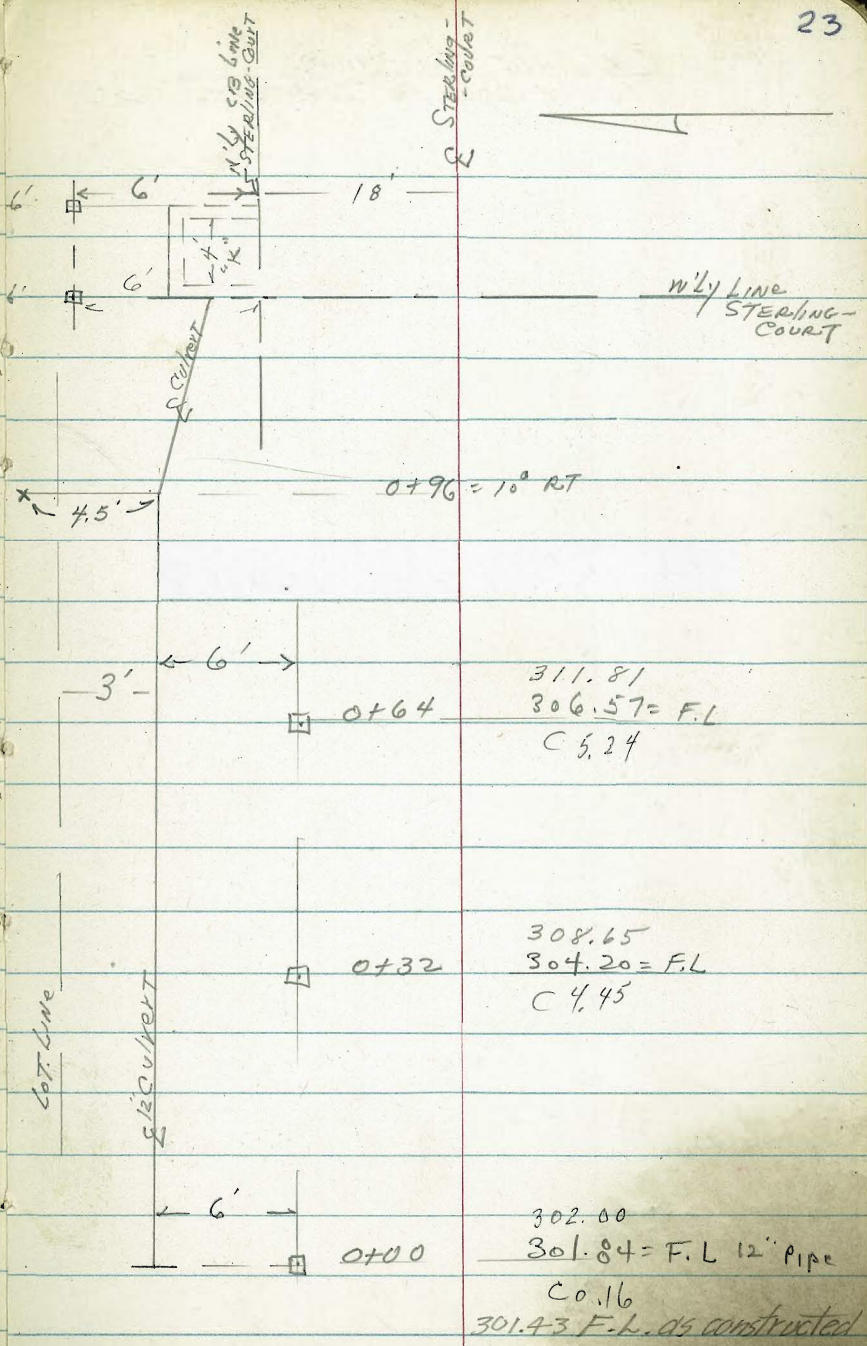 23
N'Ly CB Line
STERLING-COURT
℄ STERLING-
-COURT
6'
6'
18'
4'
"K"
6'
6'
W'Ly LINE
STERLING-
COURT
℄ Culvert
4.5'
0+96 = 10° RT
6'
3'
311.81
0+64
306.57 = F.L
C 5.24
308.65
0+32
304.20 = F.L
C 4.45
LOT. LINE
℄ 12" Culvert
6'
302.00
0+00
301.84 = F.L 12" Pipe
C 0.16
301.43 F.L. as constructed